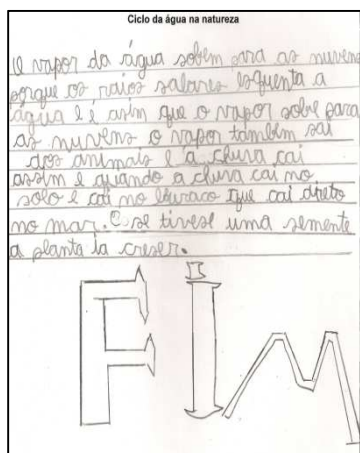 Ciclo da água na natureza
O vapor da água sobem para as nuvens
porque os raios salares esquenta a
água e é asim que o vapor sobe para
as nuvens o vapor tambem sai
dos animais e a chuva cai
assim e quando a chuva cai no
solo e cai no buraco que cai direto
no mar. E se tivese uma semente
a planta ia creser.
FIM